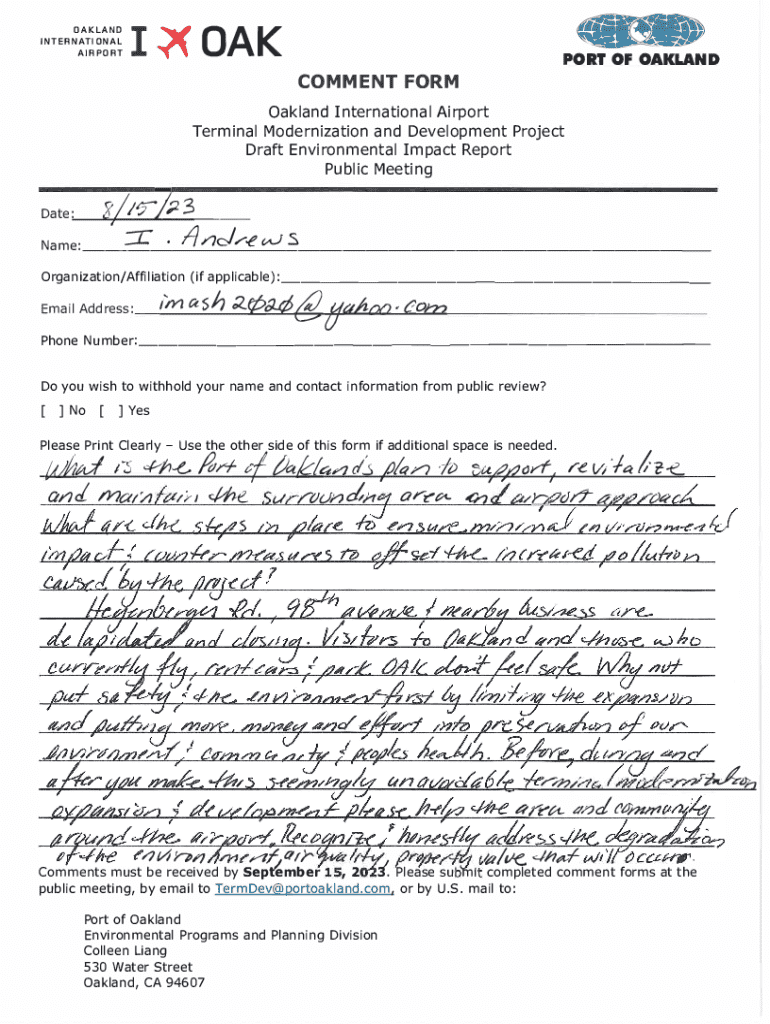 OAKLAND
INTERNATIONAL
AIRPORT
I OAK
PORT OF OAKLAND
COMMENT FORM
Oakland International Airport
Terminal Modernization and Development Project
Draft Environmental Impact Report
Public Meeting
Date: 8/15/23
Name: I. Andrews
Organization/Affiliation (if applicable):
Email Address: imash2020@yahoo.com
Phone Number:
Do you wish to withhold your name and contact information from public review?
[ ] No [ ] Yes
Please Print Clearly – Use the other side of this form if additional space is needed.
What is the Port of Oakland's plan to support, revitalize
and maintain the surrounding area and airport approach
What are the steps in place to ensure minimal environmental
impact & counter measures to off set the increased pollution
caused by the project?
Hegenberger Rd., 98th avenue & nearby business are
delapidated and closing. Visitors to Oakland and those who
currently fly, rent cars & park OAK don't feel safe. Why not
put safety & the environment first by limiting the expansion
and putting more money and effort into preservation of our
environment, & community & peoples health. Before, during and
after you make this seemingly unavoidable terminal modernization
expansion & development please help the area and community
around the airport. Recognize & honestly address the degradation
of the environment, air quality, property value that will occur.
Comments must be received by September 15, 2023. Please submit completed comment forms at the
public meeting, by email to TermDev@portoakland.com, or by U.S. mail to:
Port of Oakland
Environmental Programs and Planning Division
Colleen Liang
530 Water Street
Oakland, CA 94607